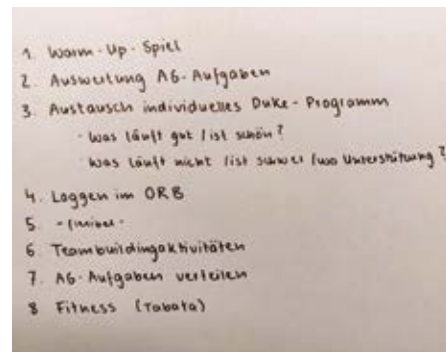 1. Warm-Up-Spiel
2. Auswertung AG-Aufgaben
3. Austausch individuelles Duke-Programm
- Was läuft gut / ist schön?
- Was läuft nicht / ist schwer / wo Unterstützung?
4. Loggen im ORB
5.
6 Teambuildingaktivitäten
7. AG-Aufgaben verteilen
8 Fitness (Tabata)